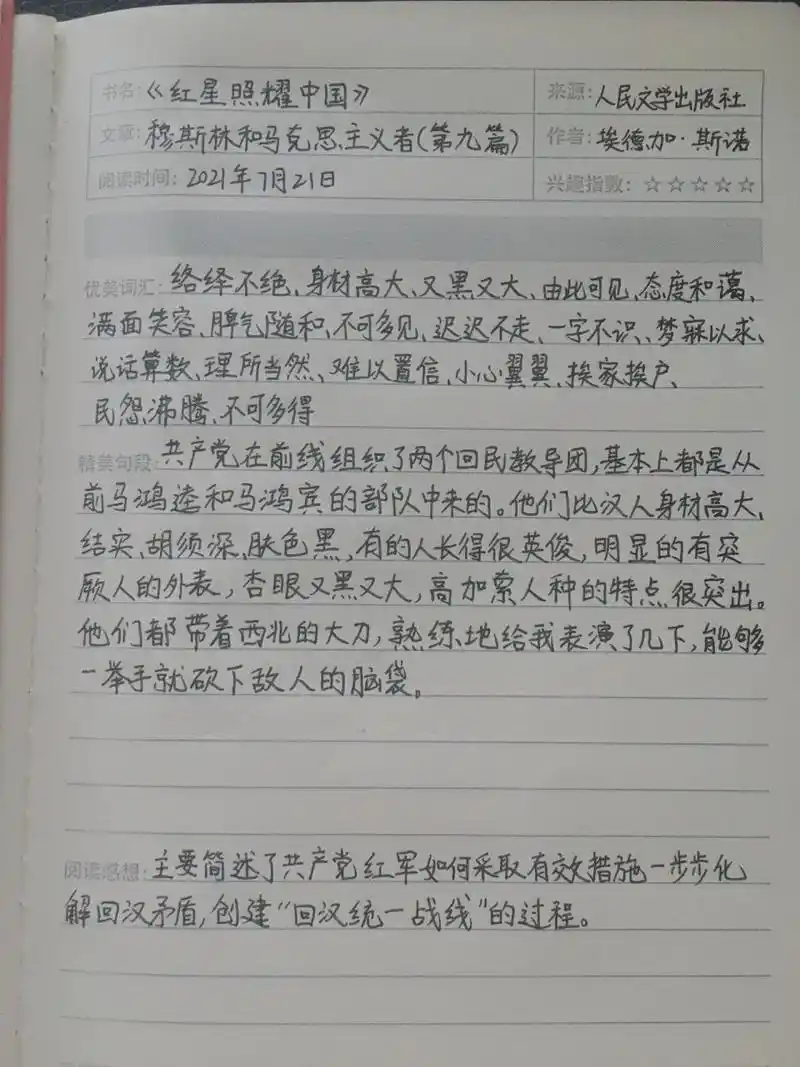 书名:《红星照耀中国》 来源:人民文学出版社
文章:穆斯林和马克思主义者(第九篇) 作者:埃德加·斯诺
阅读时间:2021年7月21日 兴趣指数:☆☆☆☆☆
优美词汇:络绎不绝、身材高大、又黑又大、由此可见、态度和蔼、
满面笑容、脾气随和、不可多见、迟迟不走、一字不识、梦寐以求、
说话算数、理所当然、难以置信、小心翼翼、挨家挨户、
民怨沸腾、不可多得
精美句段:共产党在前线组织了两个回民教导团,基本上都是从
前马鸿逵和马鸿宾的部队中来的。他们比汉人身材高大、
结实、胡须深、肤色黑,有的人长得很英俊,明显的有突
厥人的外表,杏眼又黑又大,高加索人种的特点很突出。
他们都带着西北的大刀,熟练地给我表演了几下,能够
一举手就砍下敌人的脑袋。
阅读感想:主要简述了共产党红军如何采取有效措施一步步化
解回汉矛盾,创建“回汉统一战线”的过程。